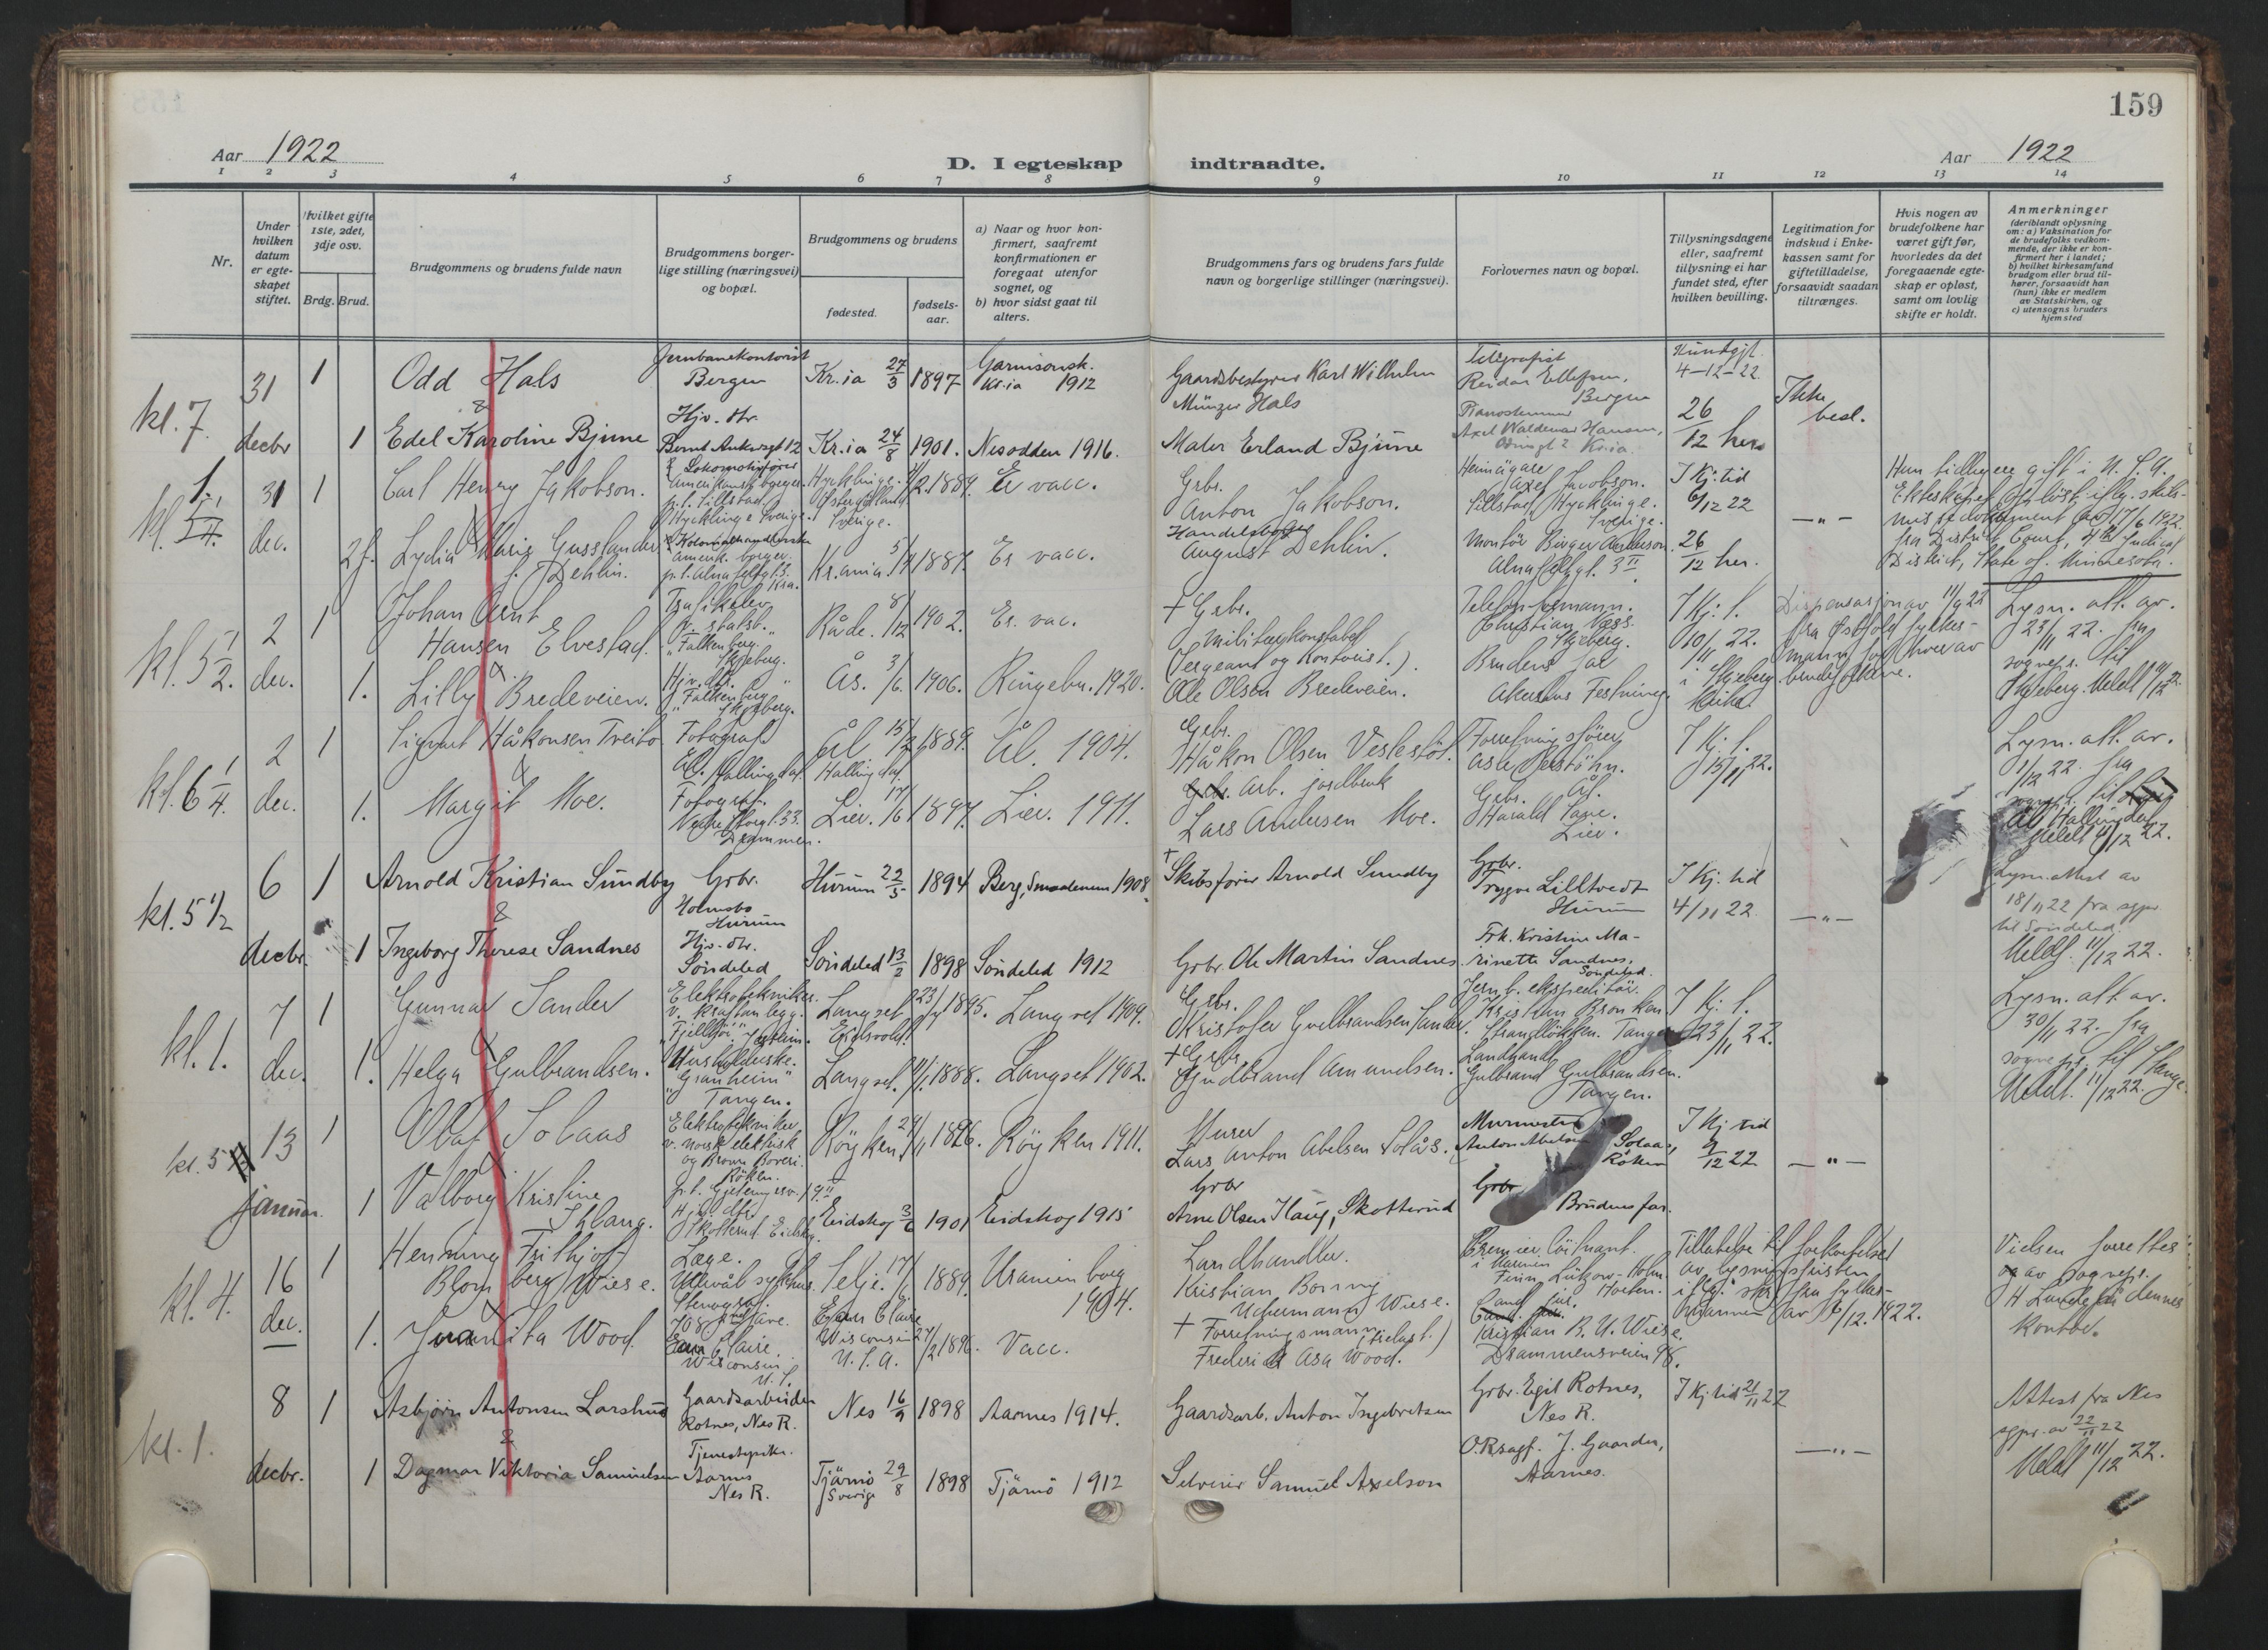 159
Aar 1922
D. I egteskap indtraadte.
Aar 1922
1 2 3 4 5 6 7 8 9 10 11 12 13 14
Nr.
Under hvilken datum er egteskapet stiftet.
Hvilket gifte 1ste, 2det, 3dje osv.
Brdg. Brud.
Brudgommens og brudens fulde navn
Brudgommens borgerlige stilling (næringsvei) og bopæl.
Brudgommens og brudens
fødested.
fødselsaar.
a) Naar og hvor konfirmert, saafremt konfirmationen er foregaat utenfor sognet, og
b) hvor sidst gaat til alters.
Brudgommens fars og brudens fars fulde navn og borgerlige stillinger (næringsvei).
Forlovernes navn og bopæl.
Tillysningsdagene eller, saafremt tillysning ei har fundet sted, efter hvilken bevilling.
Legitimation for indskud i Enkekassen samt for giftetilladelse, forsaavidt saadan tiltrænges.
Hvis nogen av brudefolkene har været gift før, hvorledes da det foregaaende egteskap er opløst, samt om lovlig skifte er holdt.
Anmerkninger
(deriblandt oplysning om: a) Vaksination for de brudefolks vedkommende, der ikke er konfirmert her i landet; b) hvilket kirkesamfund brudgom eller brud tilhører, forsaavidt han (hun) ikke er medlem av Statskirken, og c) utensogns bruders hjemsted
kl. 7. 31 decbr
1 Odd Hals
Jernbanekontorist Bergen
Kr.ia 27/3 1897
Garnisonsk. Kr.ia 1912
Gaardsbestyrer Karl Wilhelm Münzer Hals
Telegrafist Reidar Ellefsen, Bergen
Kundgjt. 4-12-22
Ikke besl.
&
1 Edel Karoline Bjune
Hjv. dtr. Bernt Ankersgt 12
Kr.ia 24/8 1901.
Nesodden 1916.
Maler Erland Bjune
Pianostemmer Axel Waldemar Hansen, Kr.ia.
26/12 her
kl. 31 dec.
1 Carl Henry Jakobson.
Lokomotivfører amerikansk borger. p.t. Tillstad Hycklinge Sverige.
Hycklinge. Östergötland Sverige. 1889.
Er vacc.
Grbr. Anton Jakobson.
Heimägare Axel Jacobson. Tillstad, Hycklinge. Sverige.
I Kj. tid 6/12 22
— " —
Hun tidligere gift i U.S.A. Ekteskapet opløst iflg. skilsmissedokument av 17/6 1922. fra District Court, 4th Judicial District, State of Minnesota.
2 f. Lydia Marie Gusslander f. Dehlin.
Kolonialhandlerske amerik. borger. p.t. Kra.
Kr.ania. 1887.
Er vacc.
Handelsborger August Dehlin.
Montör Birger Anderson. 3 II
26/12 her.
kl. 5 1/2. 2 dec.
1 Johan Arnt Hansen Elvestad.
Trafikelev v. statsb. "Falkenberg" Skjeberg.
Råde. 8/12 1902.
Er. vac.
+ Grbr. Militærkonstabel (Sergeant og Kontorist.)
Telefonformann. Christian Væss. Skjeberg.
I Kj. t. 10/11 22. i Skjeberg kirke
Dispensasjon av 11/9 22 fra Østfold fylkesmann for hver av brudefolkene.
Lysn. att. av. 23/11 22. fra sognepr. til Skjeberg. Meldt 11/12 22.
&
1. Lilly Bredeveien.
Hjv. dtr. "Falkenberg" Skjeberg.
Ås. 3/6. 1906.
Ringebu. 1920.
Ole Olsen Bredeveien.
Brudens far Akershus Festning.
kl. 6 1/4. 2 dec.
1 Sigvart Håkonsen Treito
Fotograf Ål. Hallingdal.
Ål Hallingdal. 1889.
Ål. 1904.
Grbr. Håkon Olsen Veslestöl.
Forretningsfører Asle
I Kj. t. 15/11 22.
Lysn. att. av. 1/12 22. fra sognepr. til Ål Hallingdal Meldt 11/12 22.
&
1. Margit Moe.
Fotograf. Nedre Storgt. 33. Drammen.
Lier. 17/6 1897.
Lier. 1911.
Grbr. arb. jordbruk Lars Andersen Moe.
Grbr. Harald Lier.
kl. 5 1/2 6 decbr.
1 Arnold Kristian Sundby
Grbr. Holmsbo Hurum
Hurum 22/5 1894
Berg, Smaalenene 1908
+ Skibsfører Arnold Sundby
Grbr. Trygve Lilltvedt Hurum
I Kj. tid 4/11 22
— " —
Lysn. attest av 18/11 22 fra sgpr. til Söndeled. Meldt. 11/12 22.
&
1 Ingeborg Therese Sandnes
Hjv. dtr. Söndeled
Söndeled 13/2 1898
Söndeled 1912
Grbr. Ole Martin Sandnes.
Frk. Kristine Marinette Sandnes, Söndeled.
kl. 1. 7 dec.
1 Gunnar Sander
Elektrotekniker. v. kraftanlegg.
Langset Eidsvold. 1895.
Langset 1909.
Grbr. Kristofer Gulbrandsen Sander.
Jernb. ekspeditör. Kristian Tangen
I Kj. t. 23/11 22.
Lysn. att. av. 30/11 22. fra sognepr. til Stange. Meldt. 11/12 22.
&
1. Helga Gulbrandsen.
Husholderske. "Granheim" Tangen.
Langset. 1888.
Langset 1902.
+ Grbr. Gudbrand Amundsen.
Landhand. Gulbrand Gulbrandsen. Tangen.
kl. 5 13 januar.
1 Olaf Solaas
Elektrotekniker v. norsk elektrisk og Brown Boveri. Röken.
Röyken. 1896.
Röyken 1911.
Murer Lars Anton Abelsen Solås.
Murmester Anton Abelsen Solaas, Röken
I Kj tid 9/12 22
— " —
&
1 Valborg Kristine
Hj. dtr. Skotterud Eidskog.
Eidskog 3/6 1901
Eidskog 1915
Grbr Arne Olsen Haug, Skotterud
Grbr Brudens far.
kl. 4. 16 dec.
1 Henning Frithjof Blomberg Wiese.
Læge. Ullevål sykehus.
Selje. 1889.
Uranienborg 1904.
Landhandler. Kristian Bonning Uchermann Wiese.
Premierløitnant. i Marinen Finn Lützow-Holm. Horten.
Tillatelse til forkortelse av lysningsfristen iflg. skr. fra fylkesmannen av 16/12. 1922.
Vielsen forrettes av sognepr. H Lunde på dennes kontor.
&
1. Juanita Wood.
Stenograf. 708 Eau Claire. Wisconsin U.S.
Eau Claire Wisconsin U.S.A. 1896.
Vacc.
+ Forretningsmann Frederick Asa Wood.
Cand. jur. Kristian B. U. Wiese. Drammensveien 98.
kl. 1. 8 decbr.
1 Asbjörn Antonsen Larshus
Gaardsarbeider Rotnes, Nes R.
Nes 16/9 1898
Aarnes 1914.
Gaardsarb. Anton Ingebretsen
Grbr. Egil Rotnes, Nes R.
I Kj. tid 21/11 22
— " —
Attest fra Nes sgpr. av 22/11 22 Meldt 11/12 22.
&
1 Dagmar Viktoria Samuelsen
Tjenestepike. Aarnes Nes R.
Tjärnö Sverige 29/8 1898
Tjärnö 1912
Selveier Samuel Axelson
O.R.sagf. J. Gaarder, Aarnes.